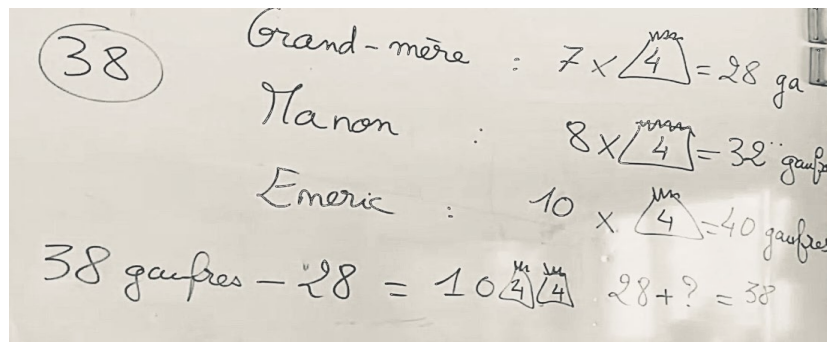 38
Grand-mère : 7 × 4 = 28 ga
Manon : 8 × 4 = 32 gaufre
Emeric : 10 × 4 = 40 gaufres
38 gaufres - 28 = 10 4 4 28 + ? = 38